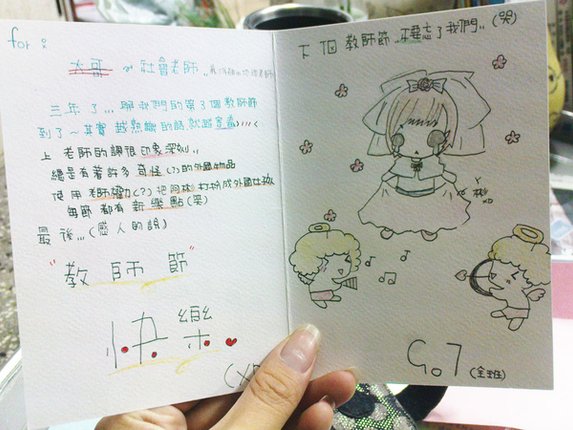 for :
大可 ~ 社會老師..
三年了...與我們的第3個教師節
到了~其實越熟識的話就越害羞)///<
上老師的課很印象深刻..
總是有著許多奇怪(?)的外國物品
使用老師權力(?)把同林打扮成外國女孩
每節都有新樂點(哭)
最後...(感人的說)
"教師節"
快樂
(XD
下個教師節..不要忘了我們..(哭)
G.7(全班)